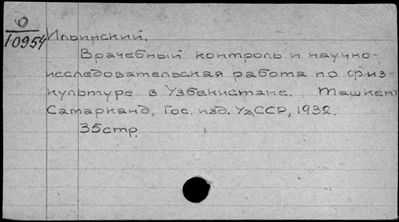 0
10954
Ильинский.
Врачебный контроль и научно-
исследовательская работа по физ-
культуре в Узбекистане. Ташкент
Самарканд, Гос. изд. УзССР, 1932.
35 стр.